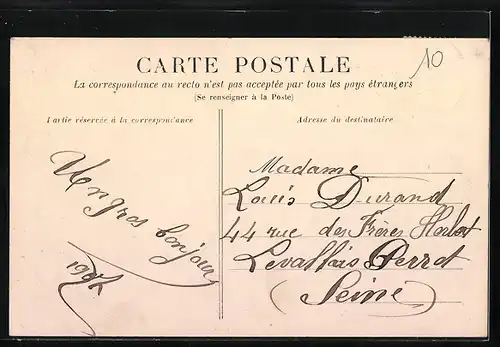 10
CARTE POSTALE
La correspondance au recto n'est pas acceptée par tous les pays étrangers
(Se renseigner à la Poste)
Partie réservée à la correspondance
Adresse du destinataire
Un gros bonjour
Madame
Louis Durand
44 rue des Frères Herbert
Levallois Perret
(Seine)